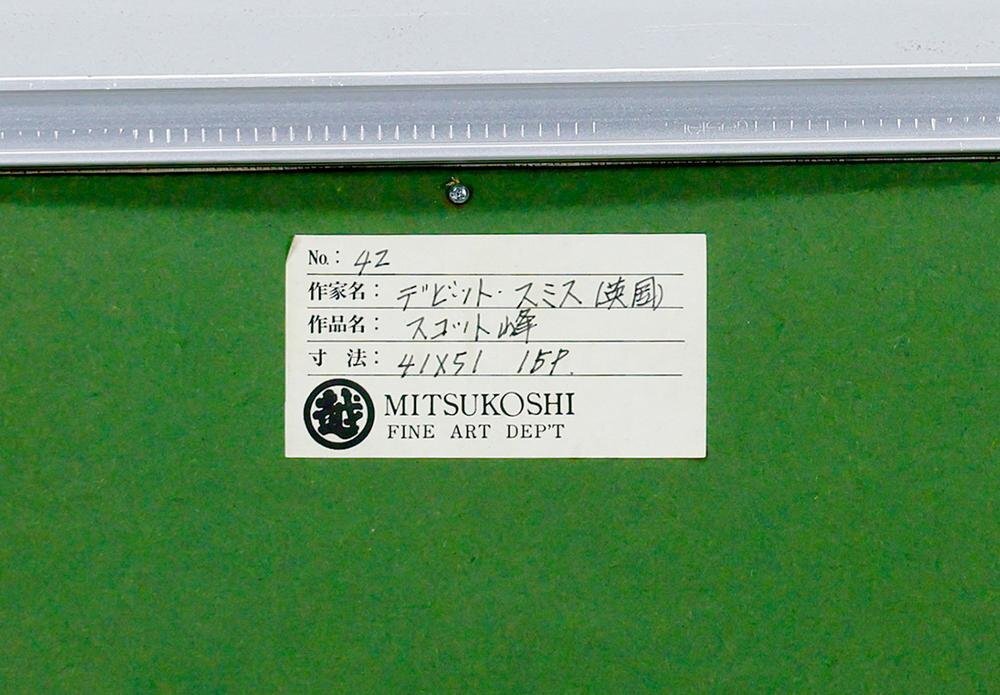 No.: 42
作家名: デビット・スミス(英国)
作品名: スコット峰
寸 法: 41×51 15P.
越
MITSUKOSHI
FINE ART DEP'T